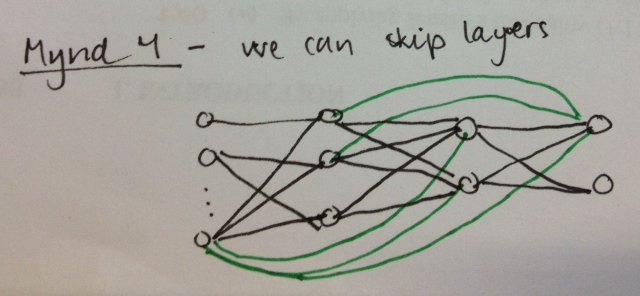 Mynd 4 - we can skip layers